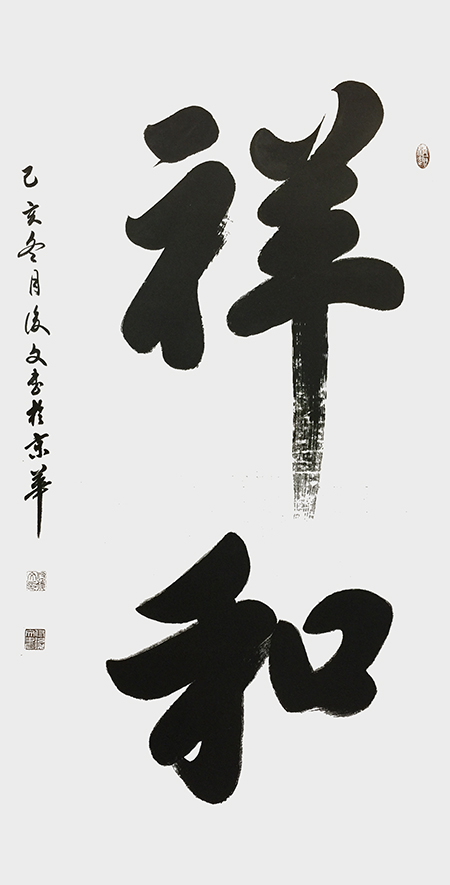 祥和
己亥冬月後文書於京華